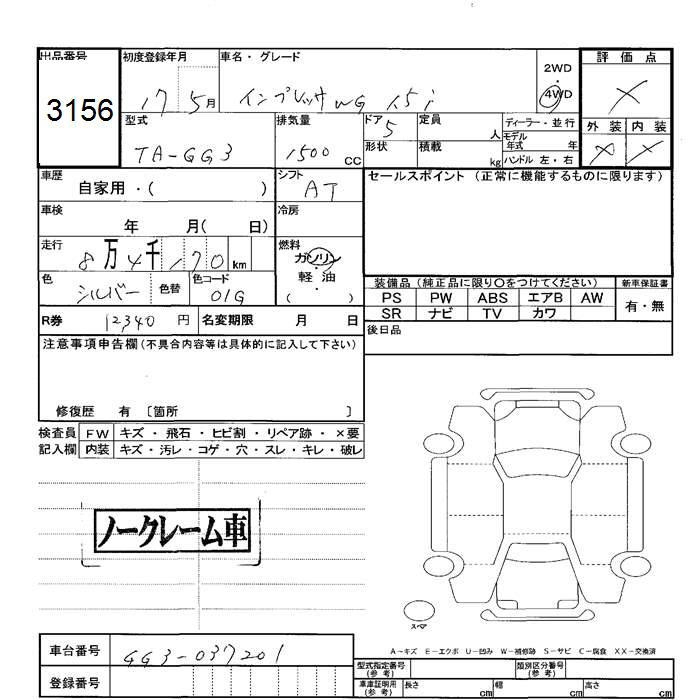 出品番号 初度登録年月 車名・グレード 2WD 評価点
3156 17 5月 インプレッサ WG 1.5i 4WD
型式 排気量 ドア 定員 ディーラー・並行 外装 内装
TA-GG3 1500 CC 5 人 モデル年式 年
形状 積載 kg ハンドル 左・右
車歴 シフト セールスポイント (正常に機能するものに限ります)
自家用・( ) AT
車検 冷房
年 月( 日)
走行 燃料
8万4千170km ガソリン
軽・油
色 色替 色コード ( )
シルバー 01G
装備品 (純正品に限り〇をつけてください) 新車保証書
PS PW ABS エアB AW 有・無
SR ナビ TV カワ
R券 12340 円 名変期限 月 日
後日品
注意事項申告欄(不具合内容等は具体的に記入して下さい)
修復歴 有 〔箇所 〕
検査員 FW キズ・飛石・ヒビ割・リペア跡・×要
記入欄 内装 キズ・汚レ・コゲ・穴・スレ・キレ・破レ
ノークレーム車
スペア
A〜キズ E−エクボ U−凹み W−補修跡 S−サビ C−腐食 XX−交換済
車台番号 GG3-037201
登録番号
型式指定番号 (参考) 類別区分番号 (参考)
車庫証明用 (参考) 長さ cm 幅 cm 高さ cm